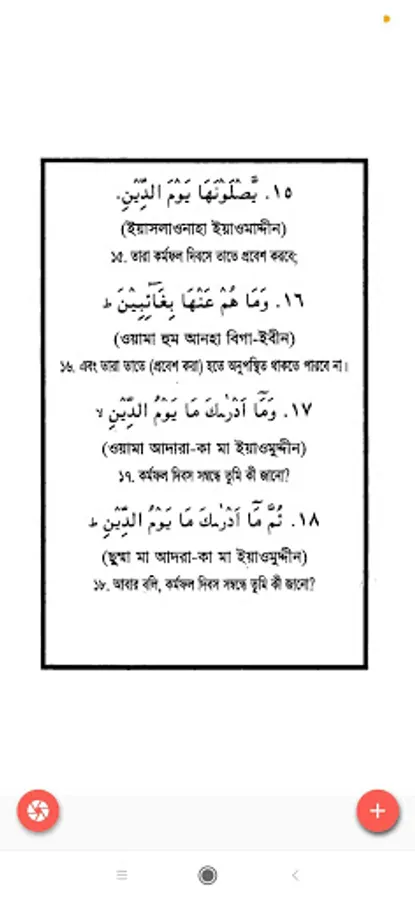 ١٥. يَّصْلَوْنَهَا يَوْمَ الدِّيْنِ.
(ইয়াসলাওনাহা ইয়াওমাদ্দীন)
১৫. তারা কর্মফল দিবসে তাতে প্রবেশ করবে;
١٦. وَمَا هُمْ عَنْهَا بِغَائِبِيْنَ ط
(ওয়ামা হুম আনহা বিগা-ইবীন)
১৬. এবং তারা তাতে (প্রবেশ করা) হতে অনুপস্থিত থাকতে পারবে না।
١٧. وَمَآ اَدْرٰىكَ مَا يَوْمُ الدِّيْنِ لا
(ওয়ামা আদারা-কা মা ইয়াওমুদ্দীন)
১৭. কর্মফল দিবস সম্বন্ধে তুমি কী জানো?
١٨. ثُمَّ مَآ اَدْرٰىكَ مَا يَوْمُ الدِّيْنِ ط
(ছুম্মা মা আদরা-কা মা ইয়াওমুদ্দীন)
১৮. আবার বলি, কর্মফল দিবস সম্বন্ধে তুমি কী জানো?